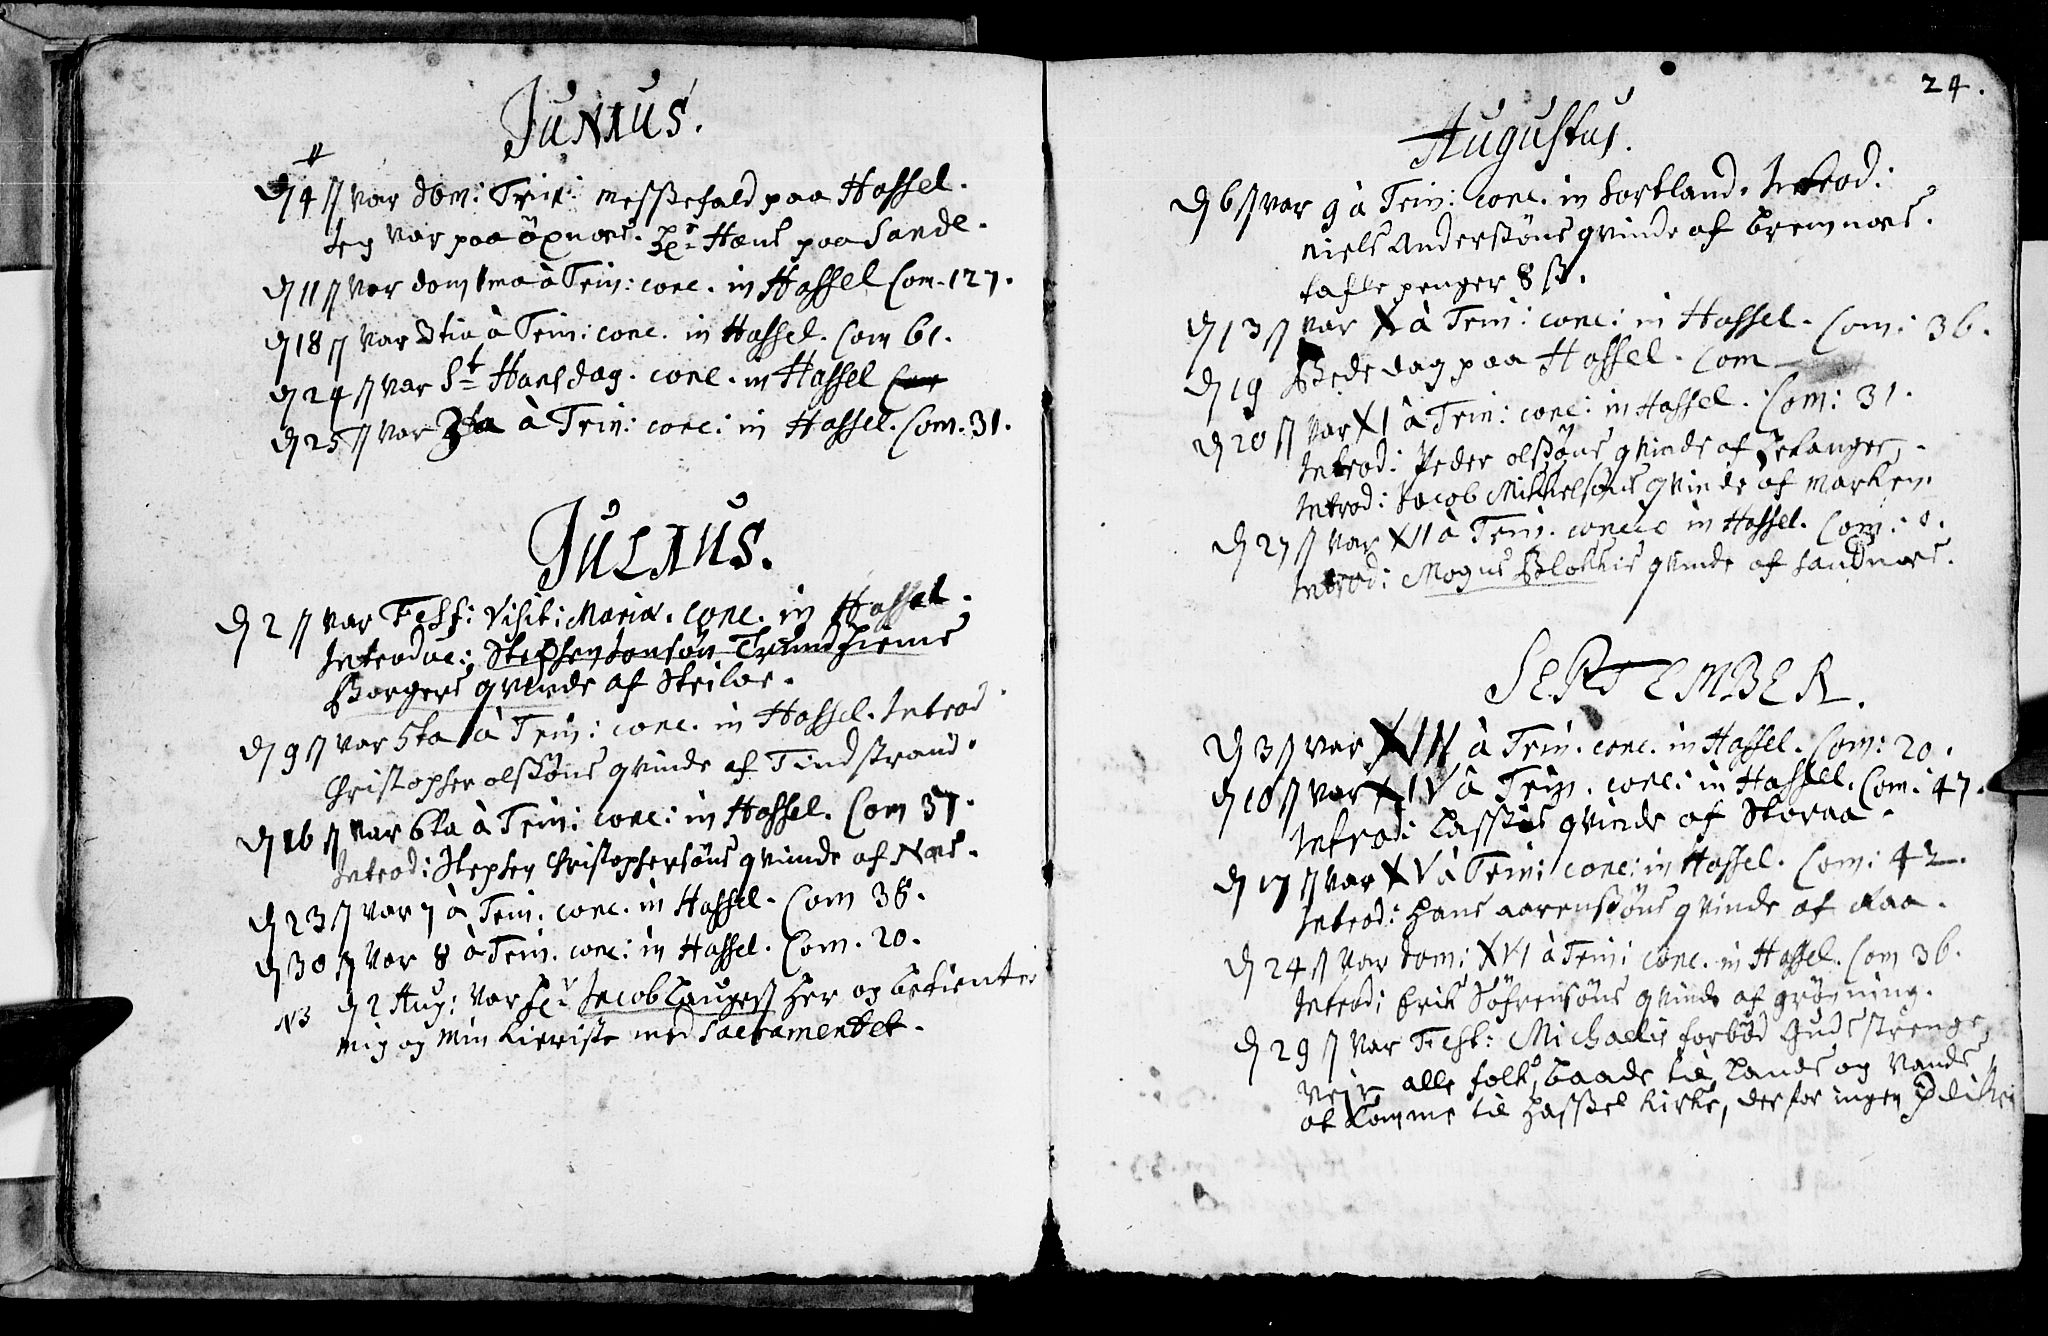 Junius.
d 4 var dom: Trin: messefald paa Hassel.
Jeg var paa öxnæs. Hr Hans paa Sande.
d 11 var dom 1ma à Trin: conc. in Hassel Com. 127.
d 18 var 3tia à Trin: conc. in Hassel. Com 61.
d 24 var St Hans dag. conc. in Hassel Com
d 25 var à Trin: conc: in Hassel. Com. 31.
Julius.
d 2 var Fest: Visit: Mariæ. conc. in Hassel.
Introduc: Stephen Jonsön Trundhiems
Borgers qvinde af Skilöe.
d 9 var 5ta à Trin: conc. in Hassel. Introd
Christopher olssöns qvinde af Tindstrand.
d 16 var 6ta à Trin: conc: in Hassel. Com 37.
Introd: Stephen Christophersöns qvinde af Næs.
d 23 var 7 à Trin. conc. in Hassel. Com 38.
d 30 var 8 à Trin. conc: in Hassel. Com. 20.
NB d 2 Aug: var Hr Jacob her og betiente
mig og min kieriste med Sacramentet.
24.
Augustus.
d 6 var 9 à Trin: conc. in Sortland. Introd:
Niels Anderssöns qvinde af Bremnæs.
tafle penger 8 ß.
d 13 var X à Trin: conc: in Hassel. Com: 36.
d 19 Bededag paa Hassel. Com
d 20 var XI à Trin: conc: in Hassel. Com: 31.
Introd: Peder olssöns qvinde af
Introd: Jacob Mikkelsöns qvinde af Marken.
d 27 var XII à Trin. conc: in Hassel. Com: 0.
Introd: Mogns Blokkis qvinde af Sandnæs.
SEPTEMBER.
d 3 var XIII à Trin. conc. in Hassel. Com: 20.
d 10 var XIV à Trin. conc: in Hassel. Com: 47.
Introd: Lasses qvinde af Storaa.
d 17 var XV à Trin: conc: in Hassel. Com: 42.
Introd: Hans aarenssöns qvinde af Raa.
d 24 var dom: XVI à Trin: conc. in Hassel. Com 36.
Introd: Erik Söfrensöns qvinde af gröning.
d 29 var Fest: Michaelis forböd Guds strenge
veir alle folk, baade til Lands og Vands
at komme til Hassel kirke, derfor ingen